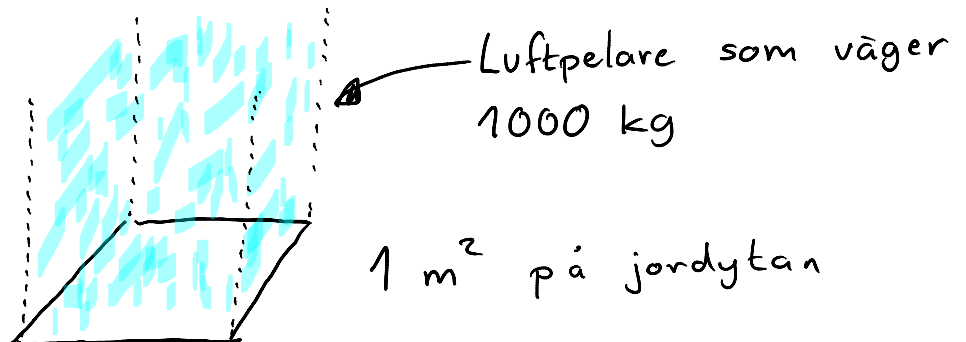 Luftpelare som väger
1000 kg
1 m² på jordytan